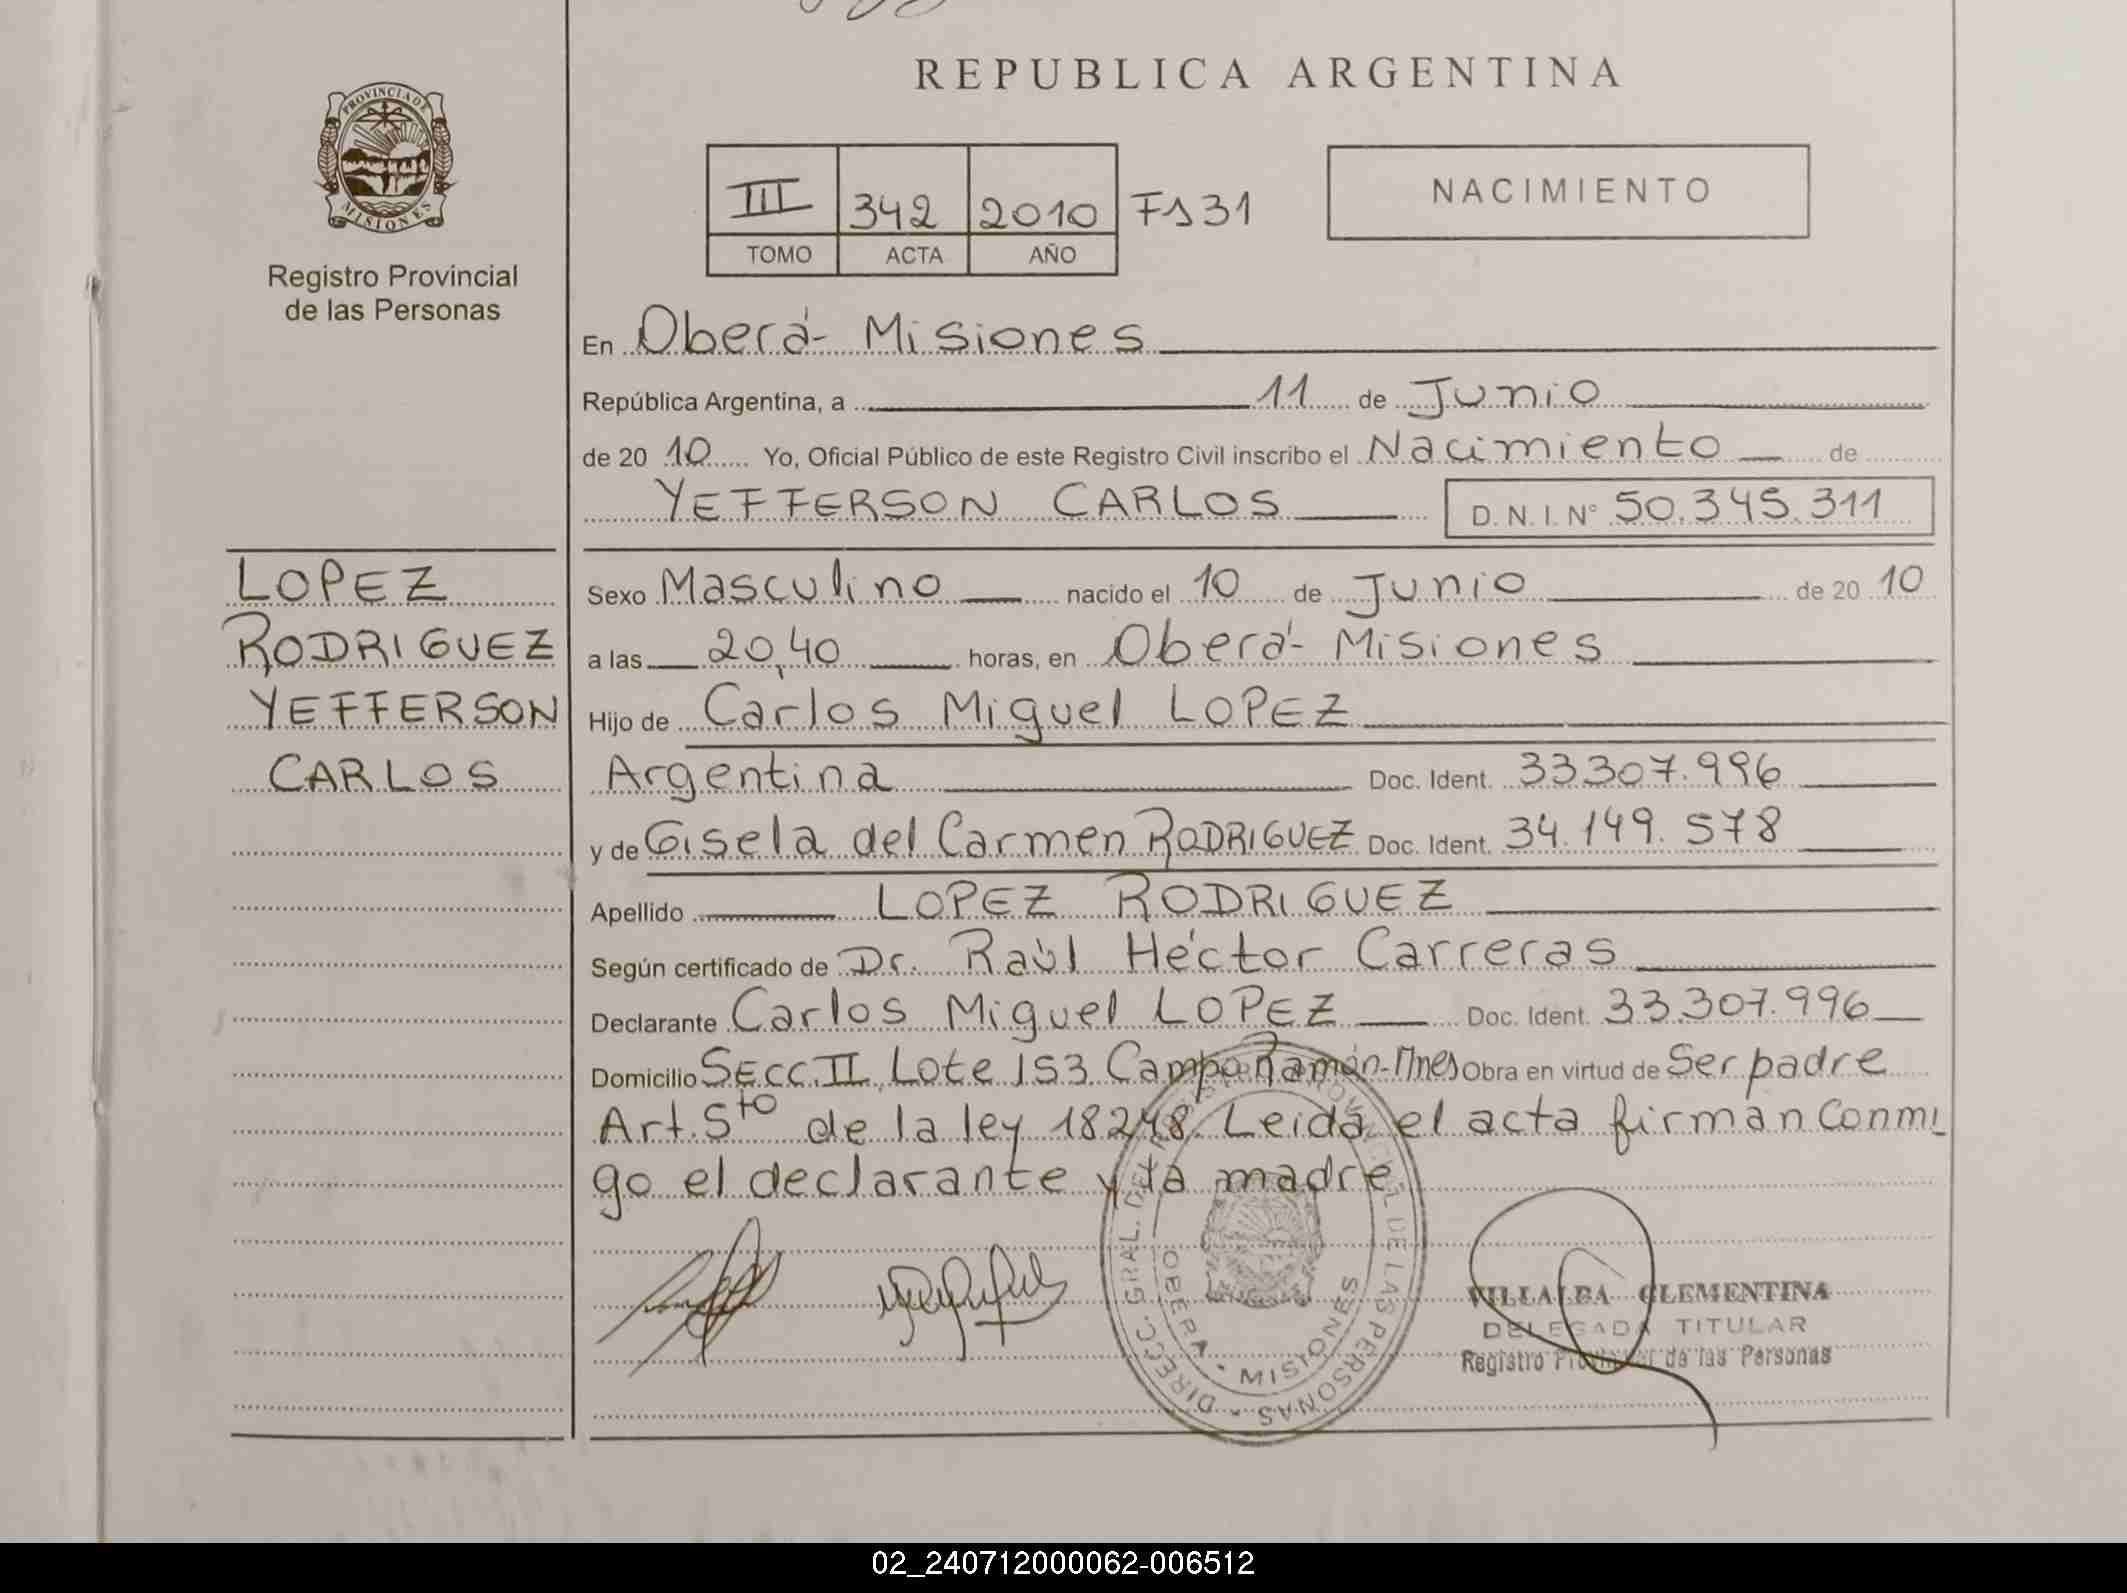 REPUBLICA ARGENTINA
PROVINCIA DE MISIONES
Registro Provincial
de las Personas
III 342 2010 Fs 31
TOMO ACTA AÑO
NACIMIENTO
En Oberá - Misiones
República Argentina, a 11 de Junio
de 20 10 Yo, Oficial Público de este Registro Civil inscribo el Nacimiento de
YEFFERSON CARLOS D. N. I. N° 50.345.311
LOPEZ
RODRIGUEZ
YEFFERSON
CARLOS
Sexo Masculino nacido el 10 de Junio de 20 10
a las 20,40 horas, en Oberá - Misiones
Hijo de Carlos Miguel LOPEZ
Argentina Doc. Ident. 33.307.996
y de Gisela del Carmen RODRIGUEZ Doc. Ident. 34.149.578
Apellido LOPEZ RODRIGUEZ
Según certificado de Dr. Raúl Héctor Carreras
Declarante Carlos Miguel LOPEZ Doc. Ident. 33.307.996
Domicilio SECC. II Lote 153 Campo Ramón - Mnes Obra en virtud de Ser padre
Art. 5to de la ley 18248. Leida el acta firman conmi
go el declarante y la madre
DIRECC. GRAL. DEL REGISTRO PROVINCIAL DE LAS PERSONAS
OBERA - MISIONES
VILLALBA CLEMENTINA
DELEGADA TITULAR
Registro Provincial de las Personas
02_240712000062-006512